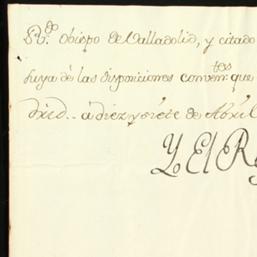 Obispo de Valladolid, y citado
suya de las disposiciones convenᵗᵉˢ que
á diez y siete de Abril
Yo El Re